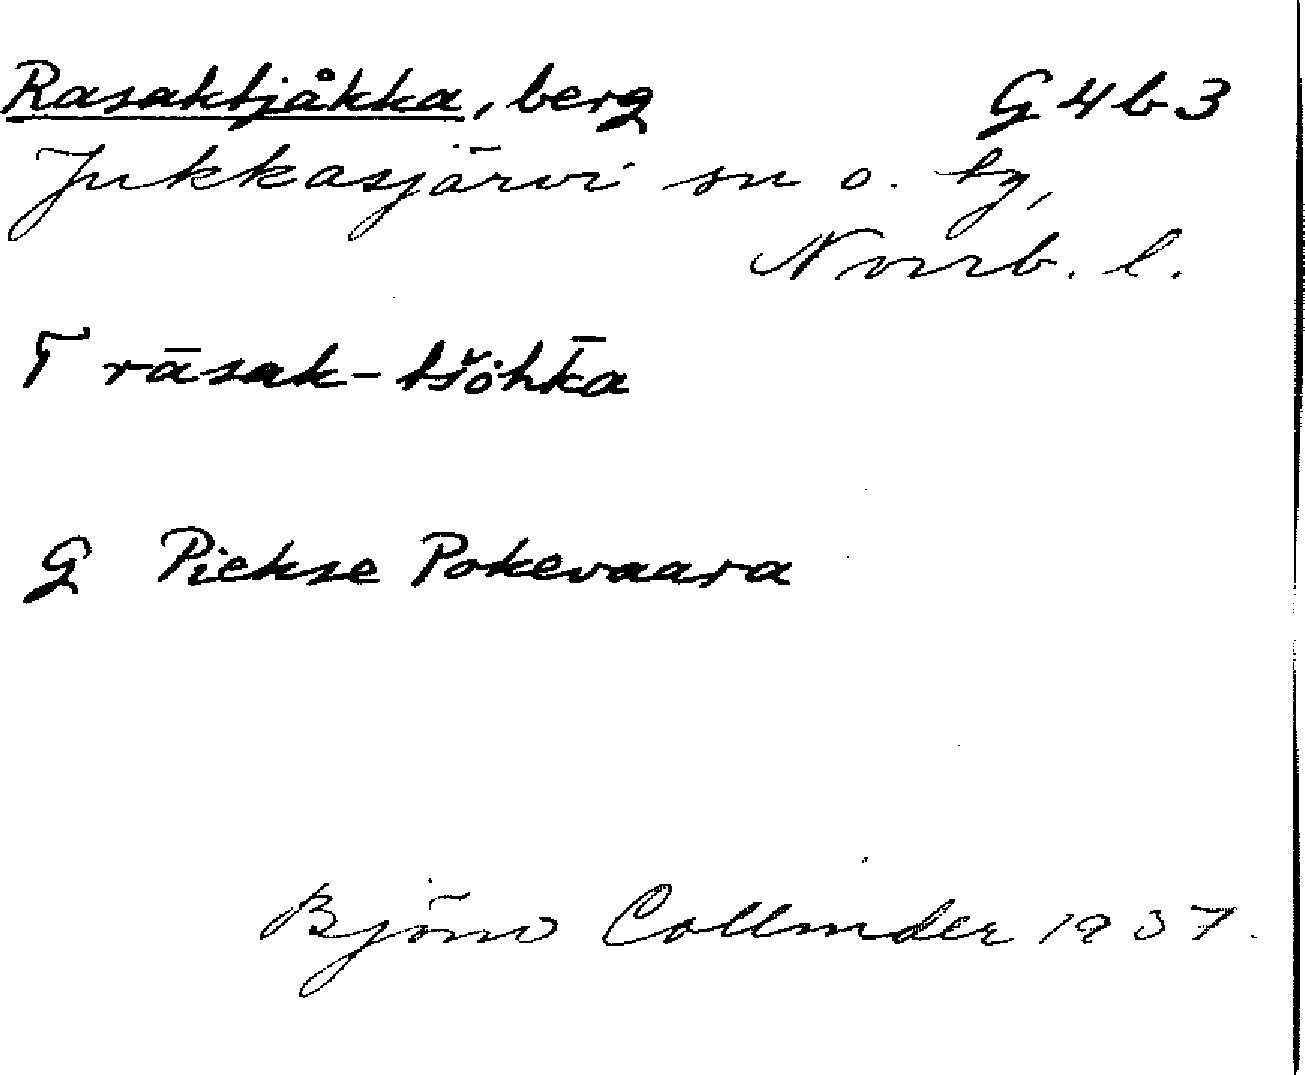 Rasaktjåkka, berg G4b3
Jukkasjärvi sn o. tg,
Norrb. l.
T rāsak-tšȯhk̄a
G Piekse Pokevaara
Björn Collinder 1937.